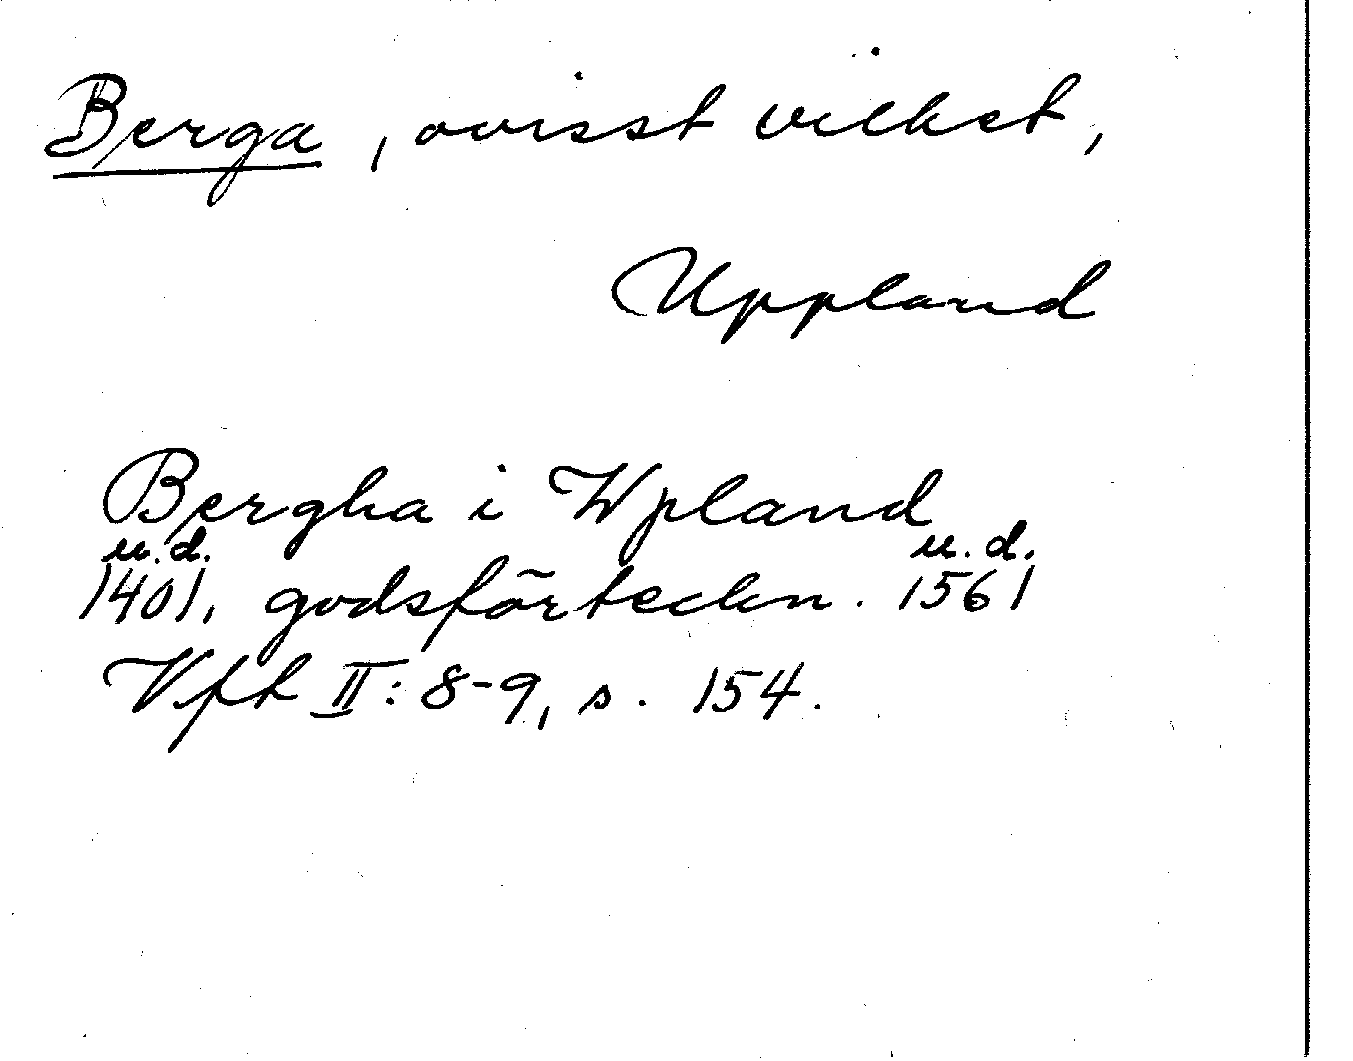 Berga, ovisst vilket,
Uppland
Bergha i Wpland
u.d. u.d.
1401, godsförteckn. 1561
Vft II: 8-9, s. 154.